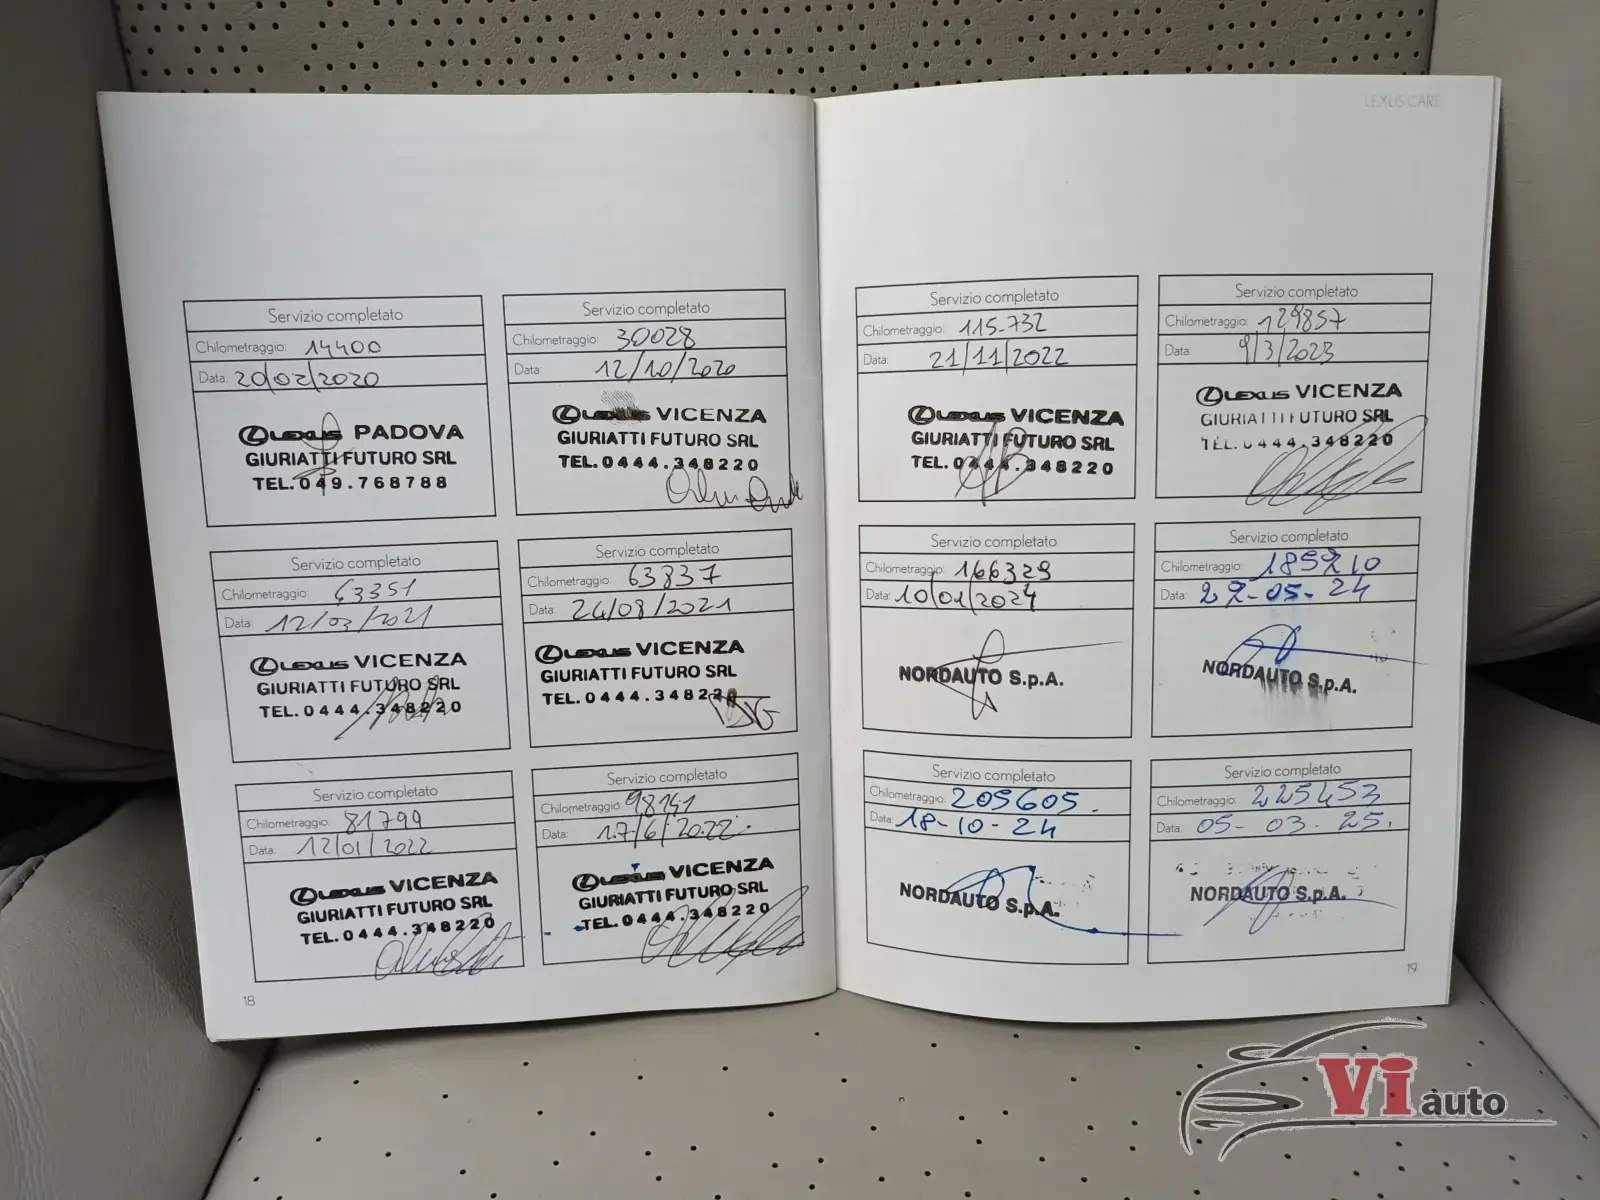 LEXUS CARE
Servizio completato
Chilometraggio: 14400
Data: 20/02/2020
LEXUS PADOVA
GIURIATTI FUTURO SRL
TEL. 049.768788
Servizio completato
Chilometraggio: 30028
Data: 12/10/2020
LEXUS VICENZA
GIURIATTI FUTURO SRL
TEL. 0444.348220
Servizio completato
Chilometraggio:
Data: 12/03/2021
LEXUS VICENZA
GIURIATTI FUTURO SRL
TEL. 0444.348220
Servizio completato
Chilometraggio: 63837
Data: 24/08/2021
LEXUS VICENZA
GIURIATTI FUTURO SRL
TEL. 0444.348220
Servizio completato
Chilometraggio: 81799
Data: 12/01/2022
LEXUS VICENZA
GIURIATTI FUTURO SRL
TEL. 0444.348220
Servizio completato
Chilometraggio: 98141
Data: 17/6/2022
LEXUS VICENZA
GIURIATTI FUTURO SRL
TEL. 0444.348220
18
Servizio completato
Chilometraggio: 115.732
Data: 21/11/2022
LEXUS VICENZA
GIURIATTI FUTURO SRL
TEL. 0444.348220
Servizio completato
Chilometraggio: 129857
Data: 9/3/2023
LEXUS VICENZA
GIURIATTI FUTURO SRL
TEL. 0444.348220
Servizio completato
Chilometraggio: 166329
Data: 10/01/2024
NORDAUTO S.p.A.
Servizio completato
Chilometraggio: 185210
Data: 27-05-24
NORDAUTO S.p.A.
Servizio completato
Chilometraggio: 205605.
Data: 18-10-24
NORDAUTO S.p.A.
Servizio completato
Chilometraggio: 225453
Data: 05-03-25.
NORDAUTO S.p.A.
19
Vi auto